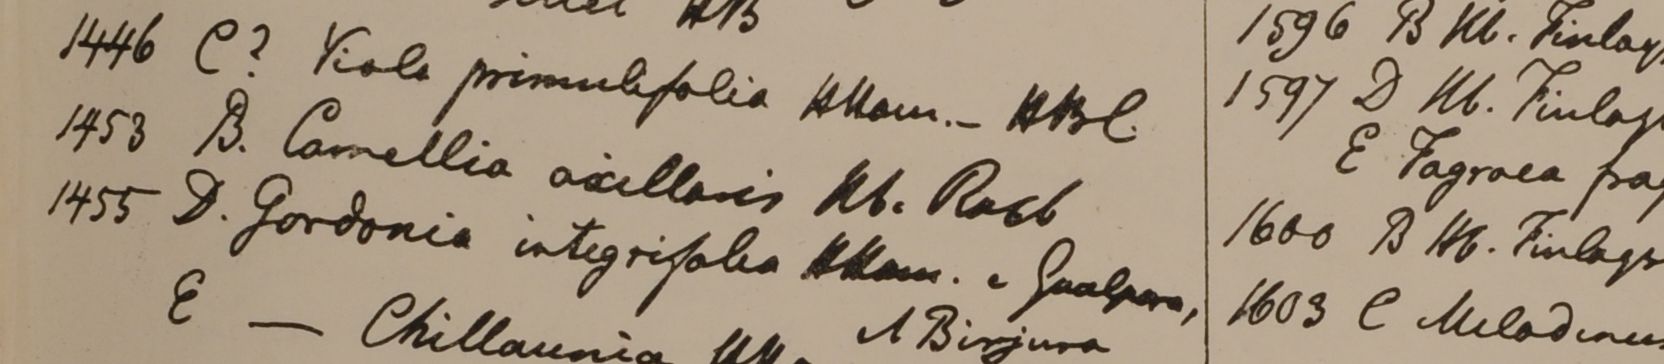 HB
1446 C? Viola primulifolia HHam. – HBC.
1453 B. Camellia axillaris Hb. Roxb
1455 D. Gordonia integrifolia HHam. e Gualpara,
1 Birjura
E — Chillaunia HH.
1596 B Hb. Finlays
1597 D Hb. Finlays
E Fagraea frag
1600 B Hb. Finlays
1603 C Melodinus